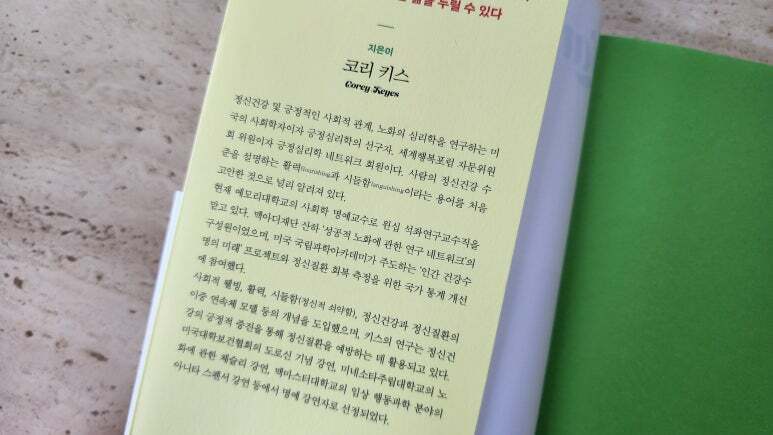 삶을 누릴 수 있다
지은이
코리 키스
Corey Keyes
정신건강 및 긍정적인 사회적 관계, 노화의 심리학을 연구하는 미
국의 사회학자이자 긍정심리학의 선구자. 세계행복포럼 자문위원
회 위원이자 긍정심리학 네트워크 회원이다. 사람의 정신건강 수
준을 설명하는 활력flourishing과 시들함languishing이라는 용어를 처음
고안한 것으로 널리 알려져 있다.
현재 에모리대학교의 사회학 명예교수로 윈십 석좌연구교수직을
맡고 있다. 맥아더재단 산하 '성공적 노화에 관한 연구 네트워크'의
구성원이었으며, 미국 국립과학아카데미가 주도하는 '인간 건강수
명의 미래' 프로젝트와 정신질환 회복 측정을 위한 국가 통계 개선
에 참여했다.
사회적 웰빙, 활력, 시들함(정신적 쇠약함), 정신건강과 정신질환의
이중 연속체 모델 등의 개념을 도입했으며, 키스의 연구는 정신건
강의 긍정적 증진을 통해 정신질환을 예방하는 데 활용되고 있다.
미국대학보건협회의 도로신 기념 강연, 미네소타주립대학교의 노
화에 관한 체슬리 강연, 맥마스터대학교의 임상 행동과학 분야의
아니타 스팬서 강연 등에서 명예 강연자로 선정되었다.